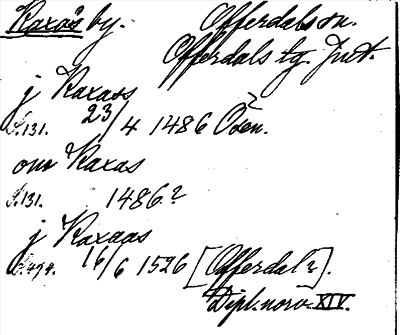 Raxås by. Offerdals sn.
Offerdals tg. Jmt.
j Raxass
S.131. 23/4 1486 Ösen.
om Raxas
S.131. 1486?
j Raxaas
S.494. 16/6 1526 [Offerdal?].
Dipl. norv. XIV.